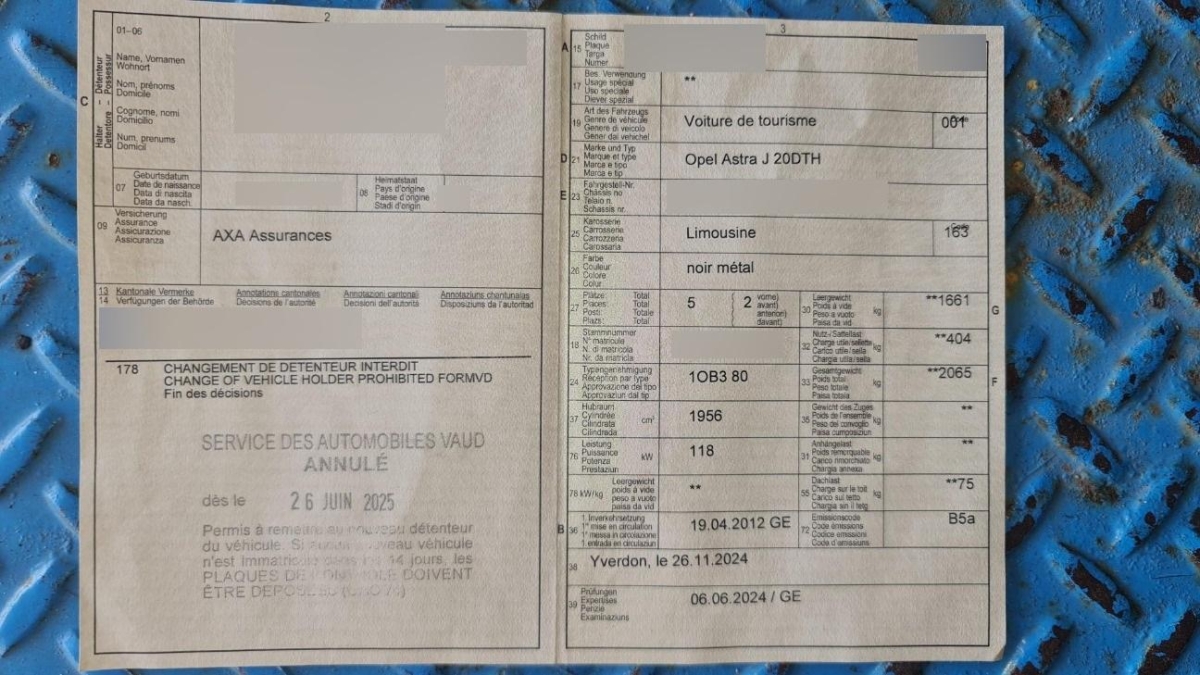 2
01-06
Halter - Détenteur
Detentore - Possessur
C
Name, Vornamen
Wohnort
Nom, prénoms
Domicile
Cognome, nomi
Domicilio
Num, prenums
Domicil
07
Geburtsdatum
Date de naissance
Data di nascita
Data da nasch.
08
Heimatstaat
Pays d'origine
Paese d'origine
Stadi d'origin
09
Versicherung
Assurance
Assicurazione
Assicuranza
AXA Assurances
13 Kantonale Vermerke Annotations cantonales Annotazioni cantonali Annotaziuns chantunalas
14 Verfügungen der Behörde Décisions de l'autorité Decisioni dell'autorità Disposiziuns da l'autoritad
178 CHANGEMENT DE DETENTEUR INTERDIT
CHANGE OF VEHICLE HOLDER PROHIBITED FORMVD
Fin des décisions
SERVICE DES AUTOMOBILES VAUD
ANNULÉ
dès le 26 JUIN 2025
Permis à remettre au nouveau détenteur
du véhicule. Si aucun nouveau véhicule
n'est immatriculé dans les 14 jours, les
PLAQUES DE CONTRÔLE DOIVENT
ÊTRE DÉPOSÉES
3
A 15
Schild
Plaque
Targa
Numer
17
Bes. Verwendung
Usage spécial
Uso speciale
Diever spezial
**
19
Art des Fahrzeugs
Genre de véhicule
Genere di veicolo
Gener dal vehichel
Voiture de tourisme
001
D 21
Marke und Typ
Marque et type
Marca e tipo
Marca e tip
Opel Astra J 20DTH
E 23
Fahrgestell-Nr.
Châssis no
Telaio n.
Schassis nr.
25
Karosserie
Carrosserie
Carrozzeria
Carossaria
Limousine
Code
163
26
Farbe
Couleur
Colore
Colur
noir métal
27
Plätze: Total
Places: Total
Posti: Totale
Plazs: Total
5
2
vorne)
avant)
anteriori)
davant)
30
Leergewicht
Poids à vide
Peso a vuoto
Paisa da vid
kg
**1661
G
18
Stammnummer
N° matricule
N. di matricola
Nr. da matricla
32
Nutz-/Sattellast
Charge utile/sellette
Carico utile/sella
Chargia utila/sella
kg
**404
24
Typengenehmigung
Réception par type
Approvazione del tipo
Approvaziun dal tip
1OB3 80
33
Gesamtgewicht
Poids total
Peso totale
Paisa totala
kg
**2065
F
37
Hubraum
Cylindrée
Cilindrata
Cilindrada
cm³
1956
35
Gewicht des Zuges
Poids de l'ensemble
Peso del convoglio
Paisa cumposiziun
kg
**
76
Leistung
Puissance
Potenza
Prestaziun
kW
118
31
Anhängelast
Poids remorquable
Carico rimorchiato
Chargia annexa
kg
**
78 kW/kg
Leergewicht
poids à vide
peso a vuoto
paisa da vid
**
55
Dachlast
Charge sur le toit
Carico sul tetto
Chargia sin il tetg
kg
**75
B 36
1. Inverkehrsetzung
1re mise en circulation
1a messa in circolazione
1. entrada en circulaziun
19.04.2012 GE
72
Emissionscode
Code émissions
Codice emissioni
Code d'emissiuns
B5a
38
Yverdon, le 26.11.2024
39
Prüfungen
Expertises
Perizie
Examinaziuns
06.06.2024 / GE